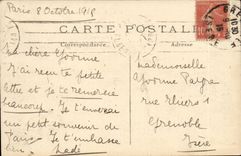 Paris 8 Octobre 1918
CARTE POSTALE
Correspondance
Ma chère Yvonne
J'ai reçu ta petite
lettre et je te remercie
beaucoup. Je t'envoie
un petit souvenir de
Paris. Je t'embrasse
bien
Mademoiselle
Yvonne
rue Thiers
Grenoble
Isère